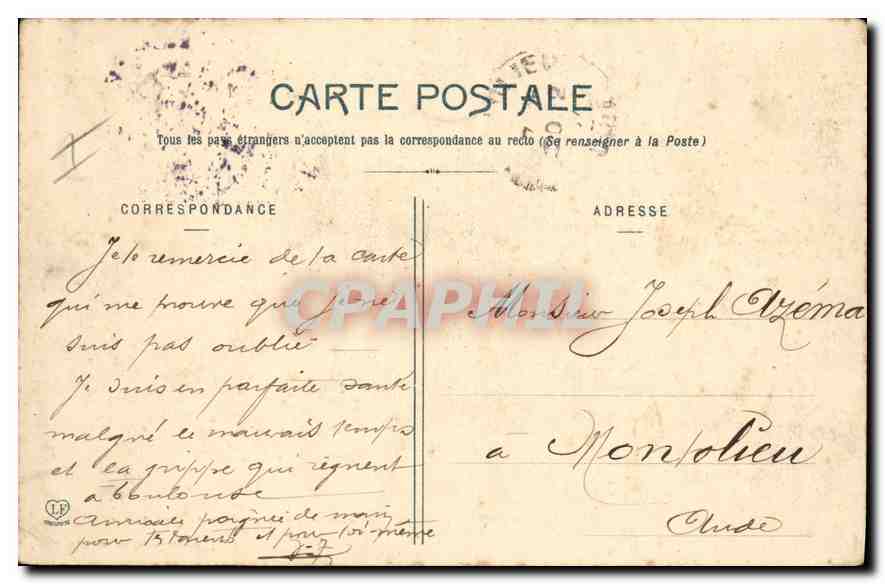 CARTE POSTALE
Tous les pays étrangers n'acceptent pas la correspondance au recto (Se renseigner à la Poste)
CORRESPONDANCE
Je te remercie de ta carte
qui me prouve que je ne
suis pas oublié
Je suis en parfaite santé
malgré le mauvais temps
et la grippe qui règnent
à Toulouse
poignée de main
pour et pour toi-même
LF
ADRESSE
Monsieur Joseph Azéma
à Montolieu
Aude
CPAPHIL